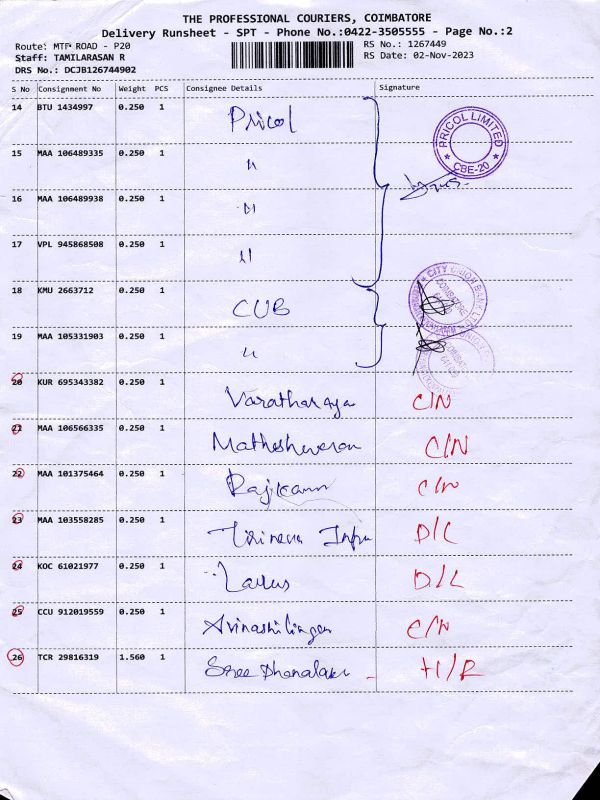 THE PROFESSIONAL COURIERS, COIMBATORE
Delivery Runsheet - SPT - Phone No.:0422-3505555 - Page No.:2
Route: MTP ROAD - P20
RS No.: 1267449
Staff: TAMILARASAN R
RS Date: 02-Nov-2023
DRS No.: DCJB126744902
S No Consignment No Weight PCS Consignee Details Signature
14 BTU 1434997 0.250 1 Pricol
PRICOL LIMITED
CBE-20
15 MAA 106489335 0.250 1 "
16 MAA 106489938 0.250 1 "
17 VPL 945868508 0.250 1 "
18 KMU 2663712 0.250 1 CUB
CITY UNION BANK LTD
COIMBATORE
19 MAA 105331903 0.250 1 "
20 KUR 695343382 0.250 1 Varatharaya C/N
21 MAA 106566335 0.250 1 Matheshwaran C/N
22 MAA 101375464 0.250 1 C/N
23 MAA 103558285 0.250 1 Infra D/L
24 KOC 61021977 0.250 1 D/L
25 CCU 912019559 0.250 1 Avinashilingam C/N
26 TCR 29816319 1.560 1 Sree Dhanalaxmi H/R